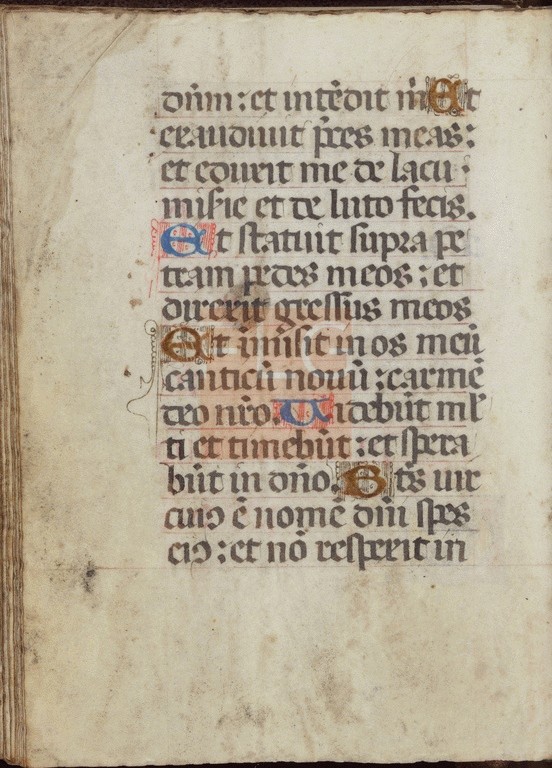 dn̄m : et intēdit m̄ Et
exaudiuit p̄ces meas :
et eduxit me de lacu
miserie et de luto fecis.
Et statuit supra pe
tram pedes meos : et
direxit gressus meos
Et īmisit in os meū
canticū nouū : carmē
deo nr̄o. Uidebūt ml̄
ti et timebūt : et spera
būt in dn̄o. Bt̄s uir
cuiꝰ ē nomē dn̄i spes
eiꝰ : et nō respexit in